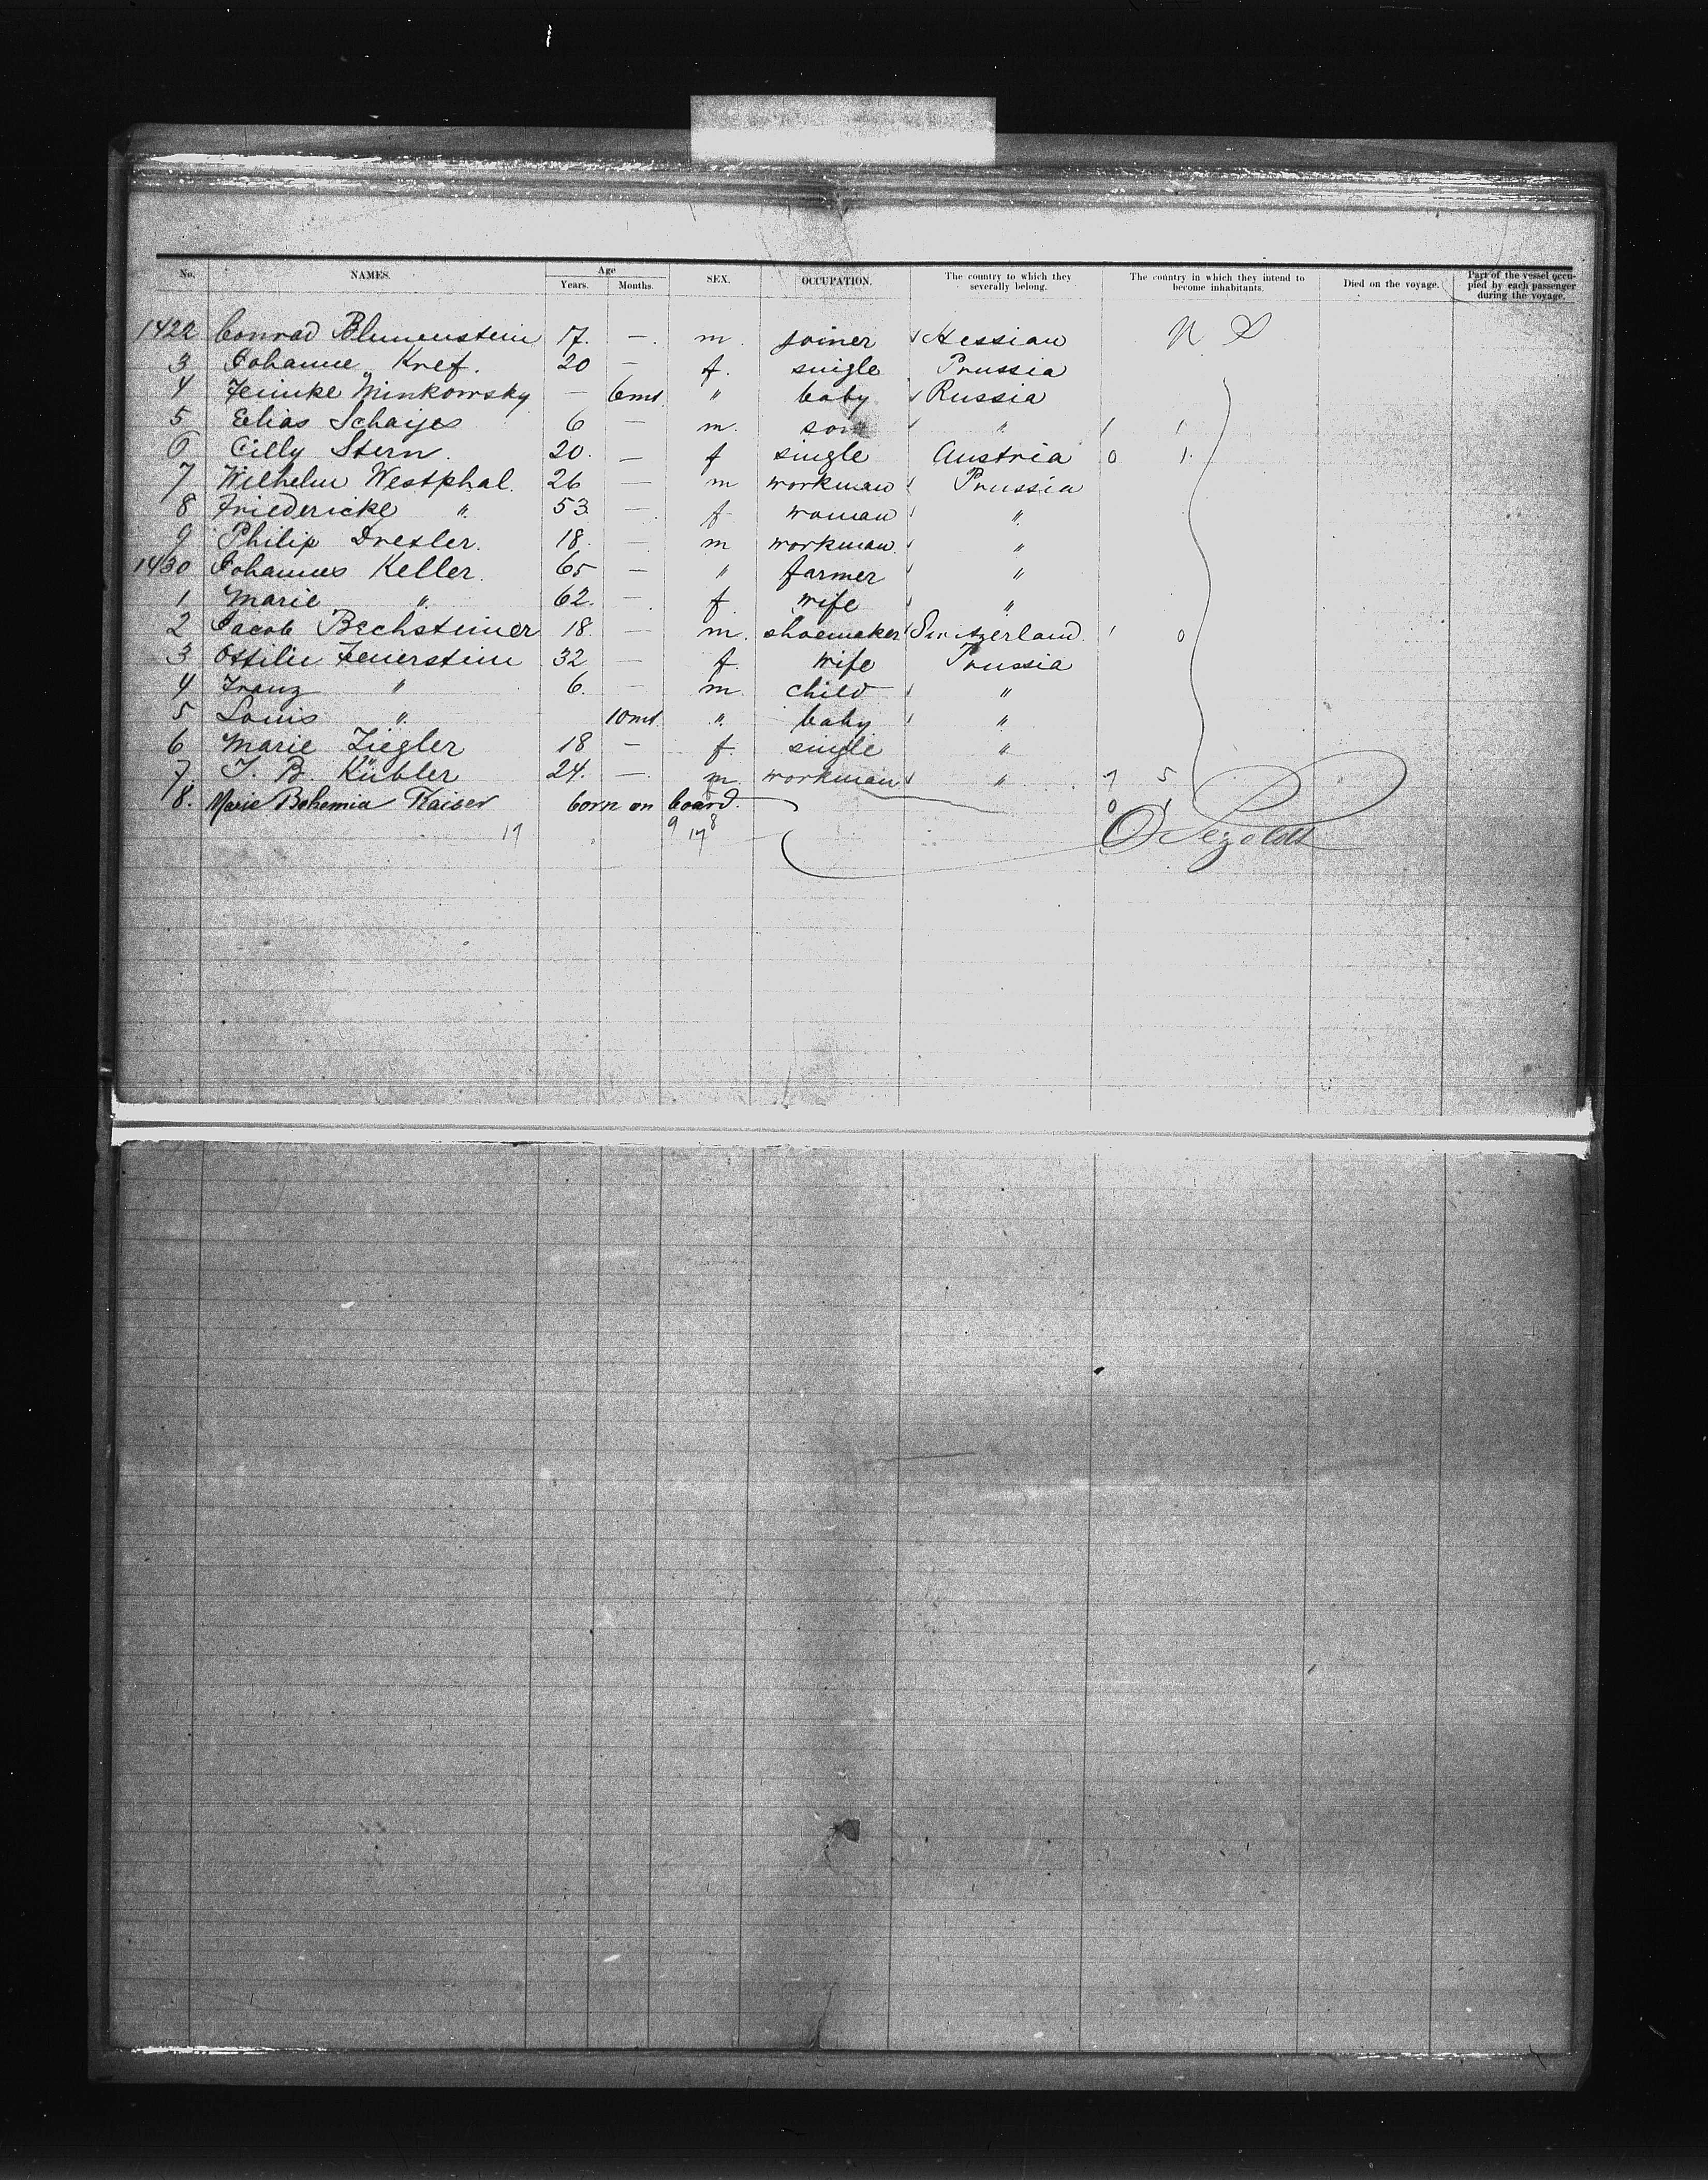 No. NAMES. Age Years. Months. SEX. OCCUPATION. The country to which they severally belong. The country in which they intend to become inhabitants. Died on the voyage. Part of the vessel occupied by each passenger during the voyage.
1422 Conrad Blumenstein 17. — m. joiner Hessian
3 Johanne Kref. 20 — f. single Prussia
4 Minkowsky — 6mt. " baby Russia
5 Elias Schaijes 6 — m. son " 1 1
6 Cilly Stern. 20. — f single Austria 0 1.
7 Wilhelm Westphal. 26 — m workman Prussia
8 Friedericke " 53 — f woman "
9 Philip Drexler. 18. — m workman. "
1430 Johannes Keller. 65 — " farmer "
1 Marie " 62. — f. wife "
2 Jacob Bechsteiner 18. — m. shoemaker Switzerland. 1 0
3 Ottilie Feuerstein 32 — f. wife Prussia
4 Franz " 6. — m. child "
5 Louis " 10mt. " baby "
6 Marie Ziegler 18 — f. single "
7. J. B. Kübler 24. — m. workman " 7 5
8. Marie Bohemia Kaiser born on board. 0 1
17 9 8
17